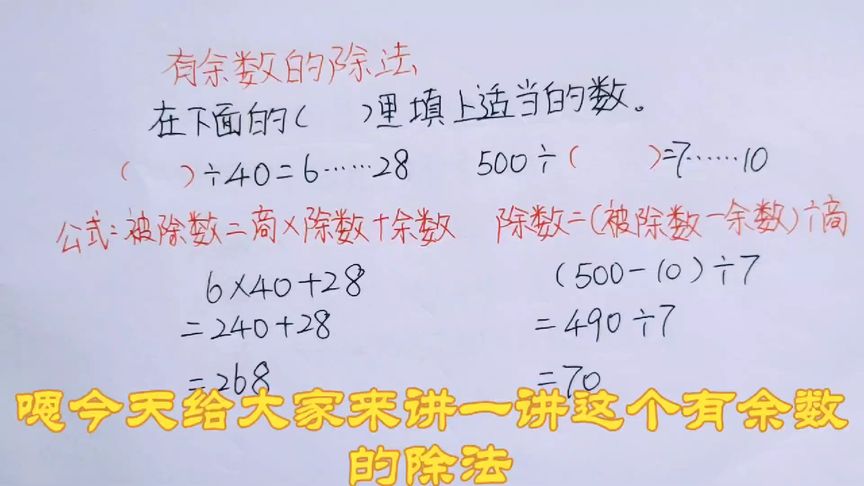 有余数的除法
在下面的( )里填上适当的数。
( )÷40=6……28 500÷( )=7……10
公式:被除数=商×除数+余数 除数=(被除数-余数)÷商
6×40+28 (500-10)÷7
=240+28 =490÷7
=268 =70
嗯今天给大家来讲一讲这个有余数
的除法